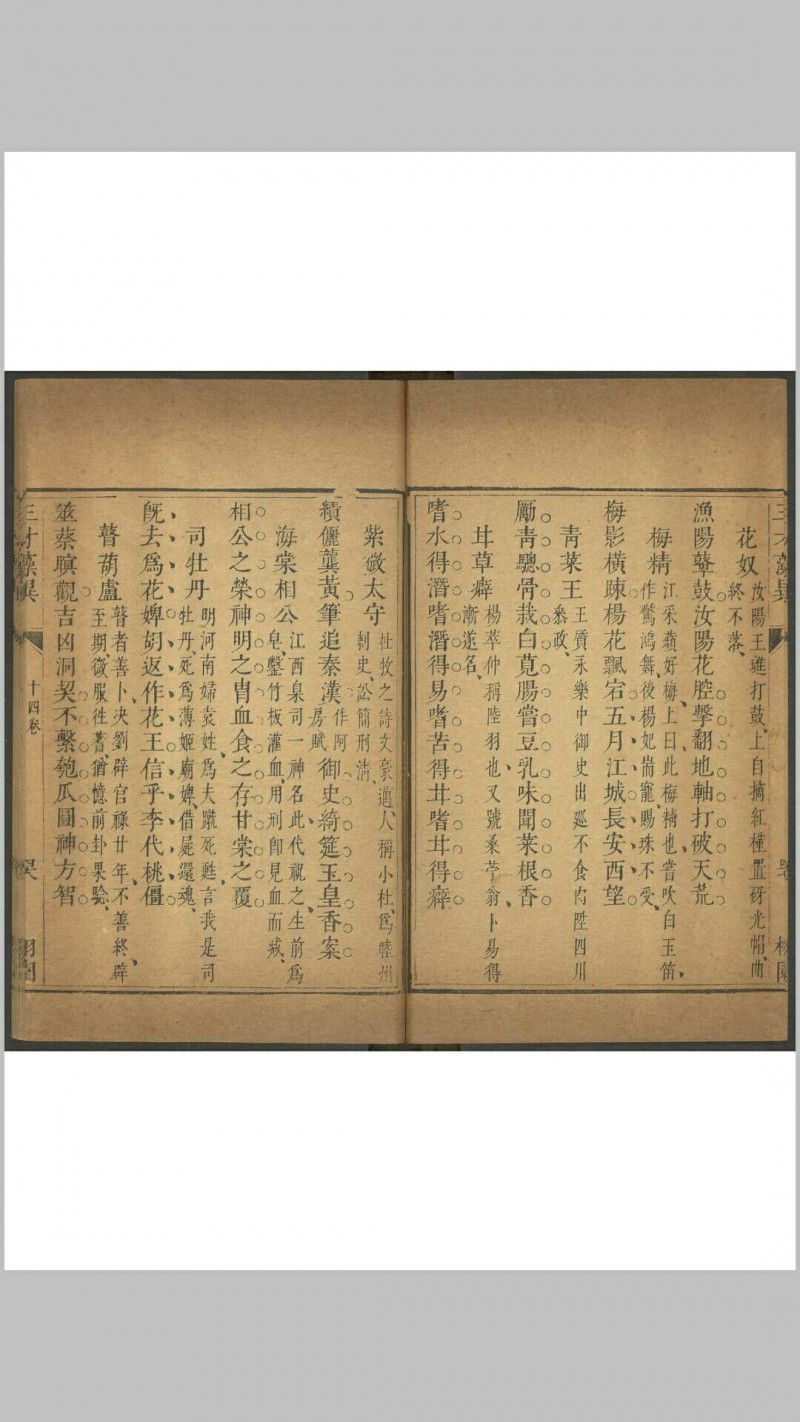 花奴 汝陽王璡打鼓、上自摘紅槿置砑光帽、曲
終不落、
漁陽鼙鼓汝陽花腔擊翻地軸打破天荒
梅精 江采蘋好梅、上曰此梅精也、嘗吹白玉笛、
作驚鴻舞、後楊妃耑寵賜珠不受、
梅影橫踈楊花飄宕五月江城長安西望
靑菜王 王質永樂中御史出巡不食肉陞四川
叅政、
勵靑驄骨栽白莧腸嘗豆乳味聞菜根香
艸草癖 楊萃仲稱陸羽也、又號桑苧翁、卜易得
漸遂名、
嗜水得潛嗜潛得易嗜苦得茸嗜茸得癖
紫微太守 杜牧之詩文豪邁、人稱小杜、爲睦州
刺史、訟簡刑淸、
績儷龔黃筆追秦漢 作阿房賦 御史綺筵玉皇香案
海棠相公 江西臬司一神名此代祝之、生前爲
皂、鑿竹板灌血、用刑卽見血而戒、
相公之榮神明之冑血食之存甘棠之覆
司牡丹 明河南婦袁姓、爲夫蹴死甦、言我是司
牡丹、死爲薄姬廟婢、借屍還魂、
旣去爲花婢胡返作花王信乎李代桃僵
瞽葫盧 瞽者善卜、决劉辟官祿廿年、不善終、辟
至期、微服往蓍、猶憶前卦果驗、
筮蔡瞑觀吉凶洞契不繫匏瓜圓神方智
三才藻異
十四卷